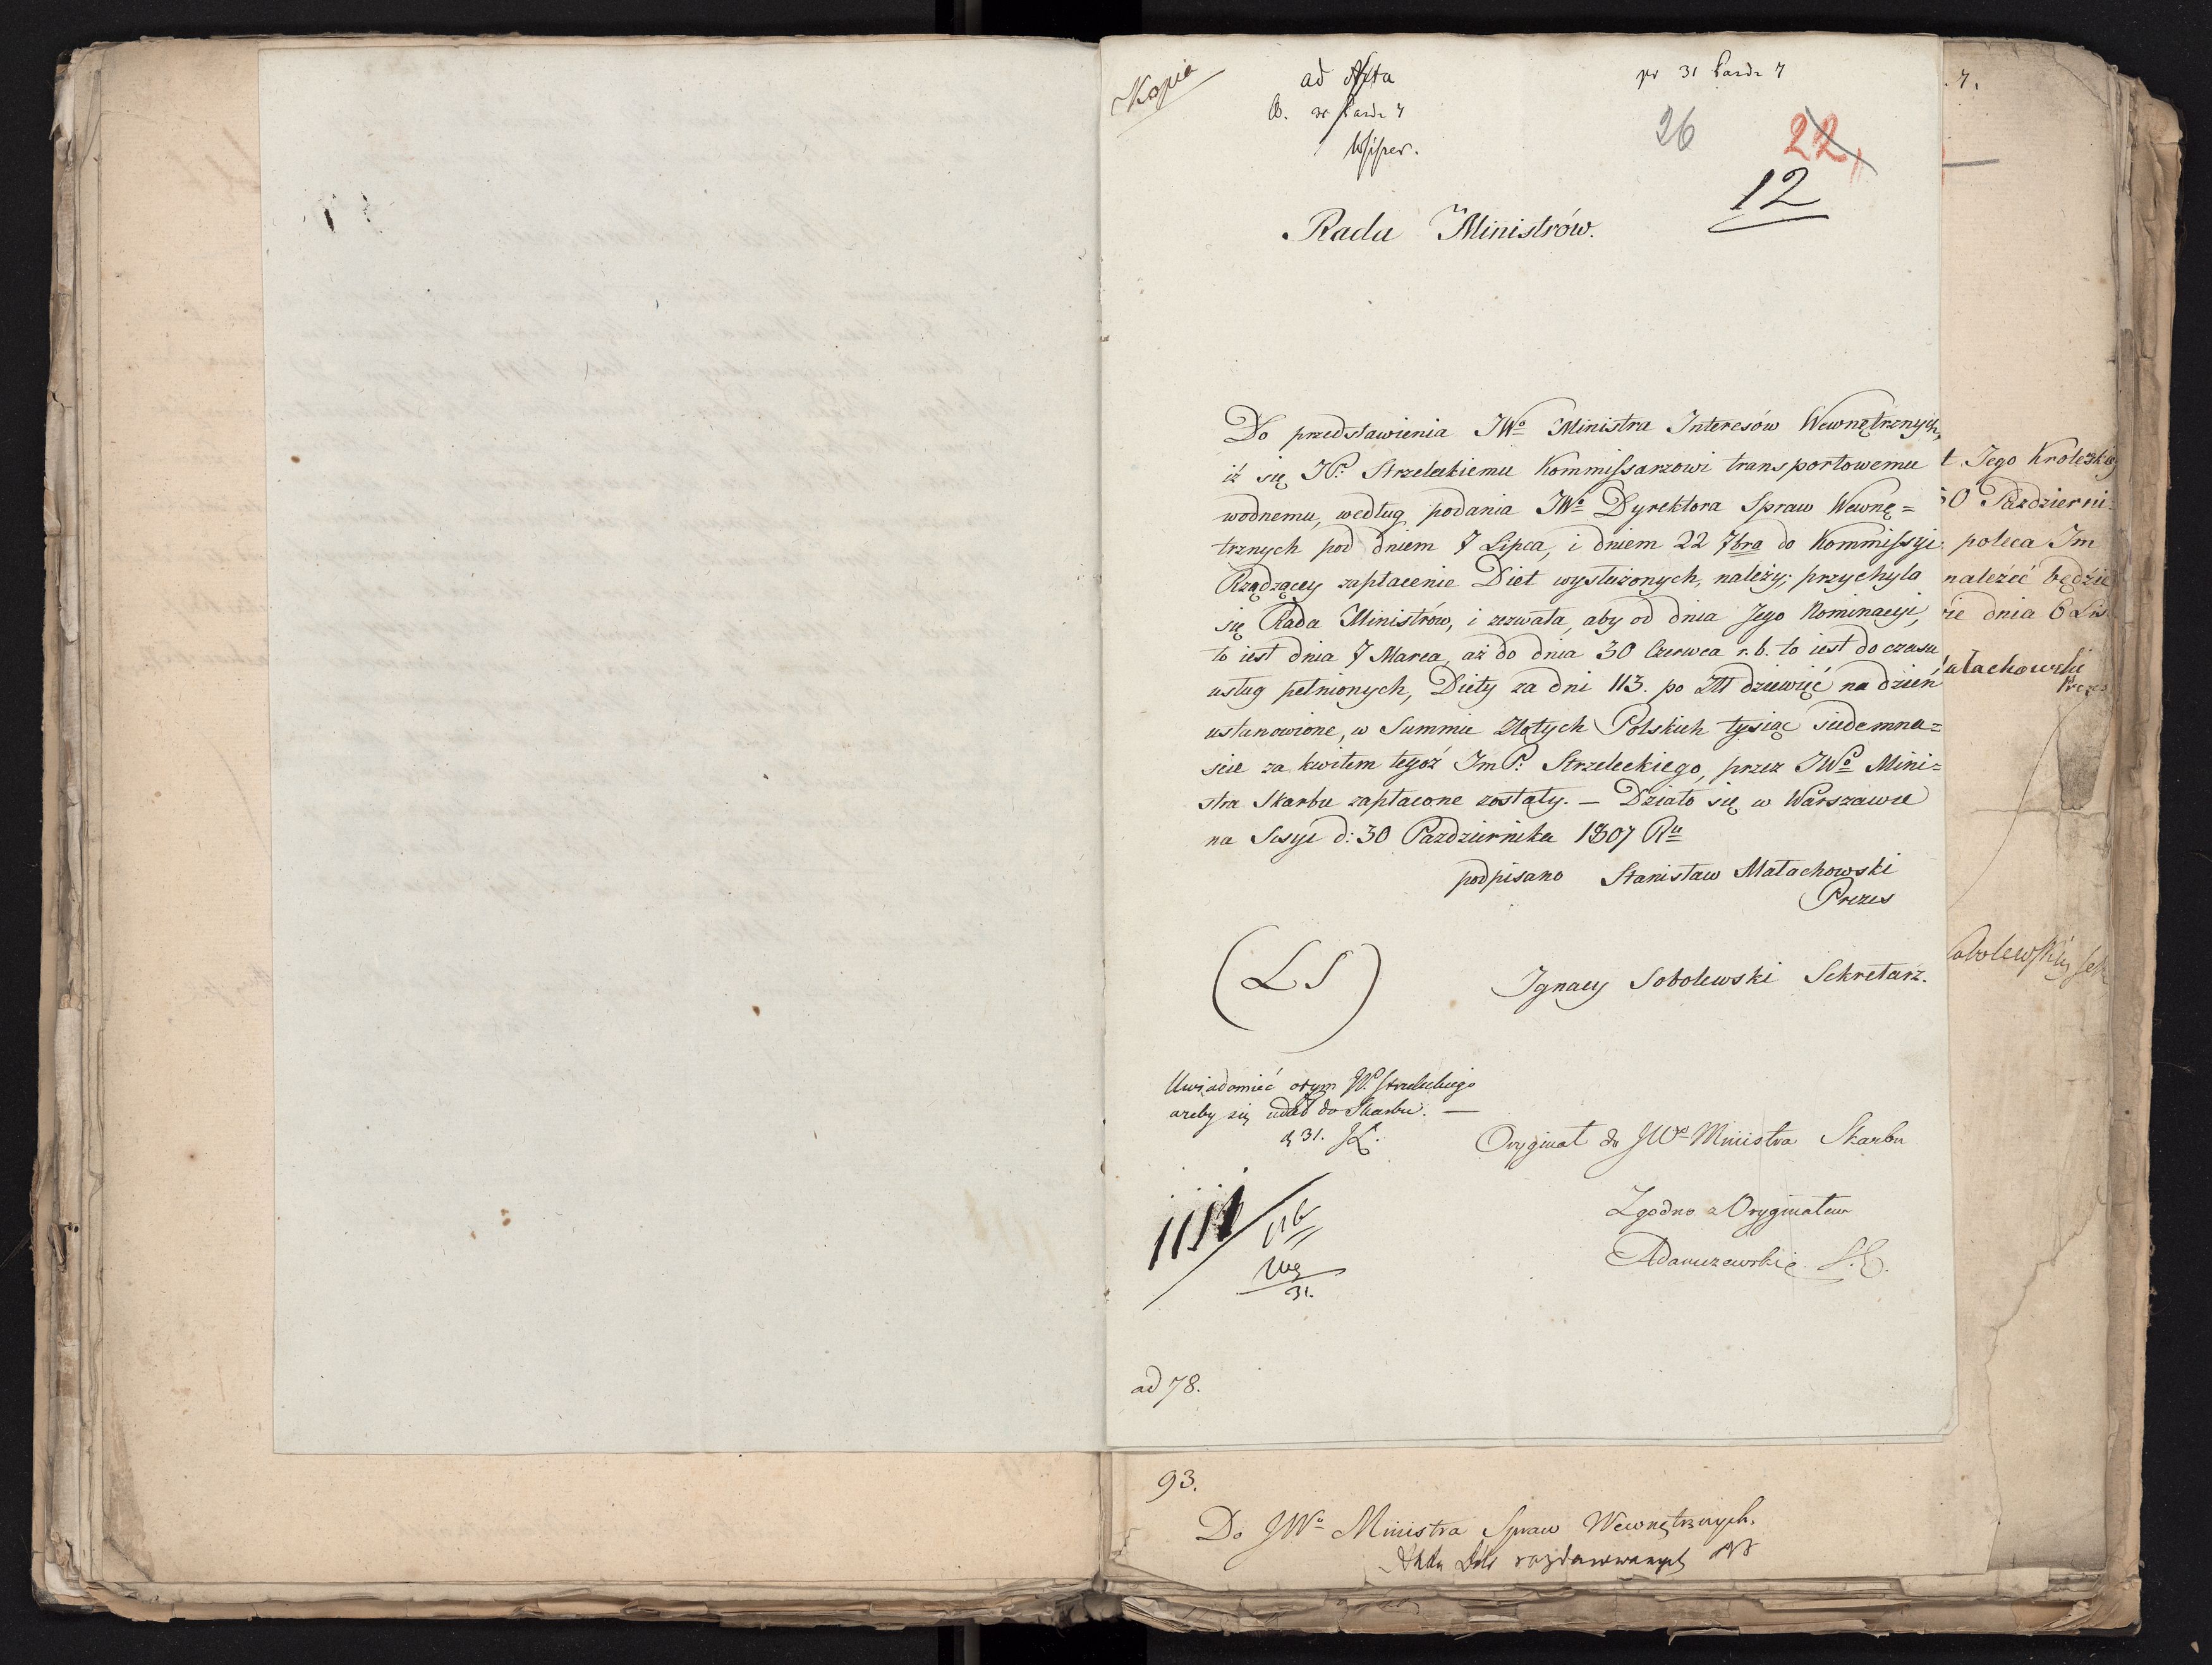 Kopia
ad Acta
pr 31 Pazdr 7
26
22
12
Rada Ministrów.
Do przedstawienia JWo Ministra Interesów Wewnętrznych,
iż się JP. Strzeleckiemu Kommissarzowi transportowemu
wodnemu, według podania JWo Dyrektora Spraw Wewnę=
trznych pod dniem 7 Lipca, i dniem 22 7bra do Kommissyi
Rządzącey zapłacenie Diet wysłużonych, należy; przychyla
się Rada Ministrów, i zezwala, aby od dnia Jego Nominacyi,
to iest dnia 7 Marca, aż do dnia 30 Czerwca r.b. to iest do czasu
usług pełnionych, Diety za dni 113. po Złł dziewięć na dzień
ustanowione, w Summie Złotych Polskich tysiąc siedemna=
scie za kwitem tegoż JmP: Strzeleckiego, przez JWo Mini=
stra Skarbu zapłacone zostały. — Działo się w Warszawie
na Sesyi d: 30 Pazdziernika 1807 Ru
podpisano Stanisław Małachowski
Prezes
(LS)
Ignacy Sobolewski Sekretarz.
Uwiadomić otym JP. Strzeleckiego
azeby się udał do Skarbu. —
d 31.
Oryginał do JWo Ministra Skarbu
Zgodno z Oryginałem
Adamczewski
31.
ad 78.
93.
Do JWo Ministra Spraw Wewnętrznych.
t. Jego Królewski
30 Pazdzierni=
poleca Im
należeć będzie
dnia 6 Lis
ałachowski
Prezes
obolewski Sek